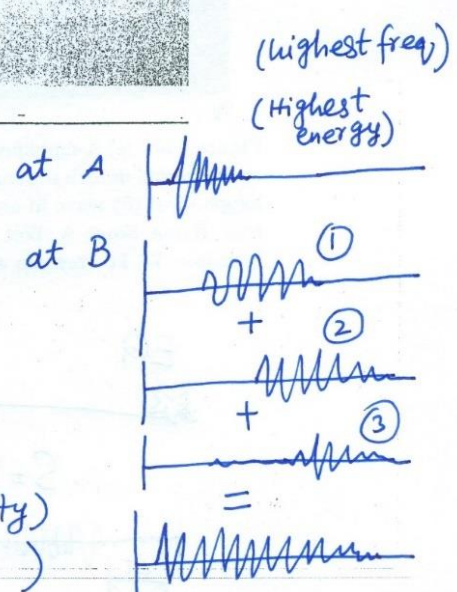 (highest freq)
(Highest
energy)
at A
at B
①
+
②
+
③
=
ty)
)